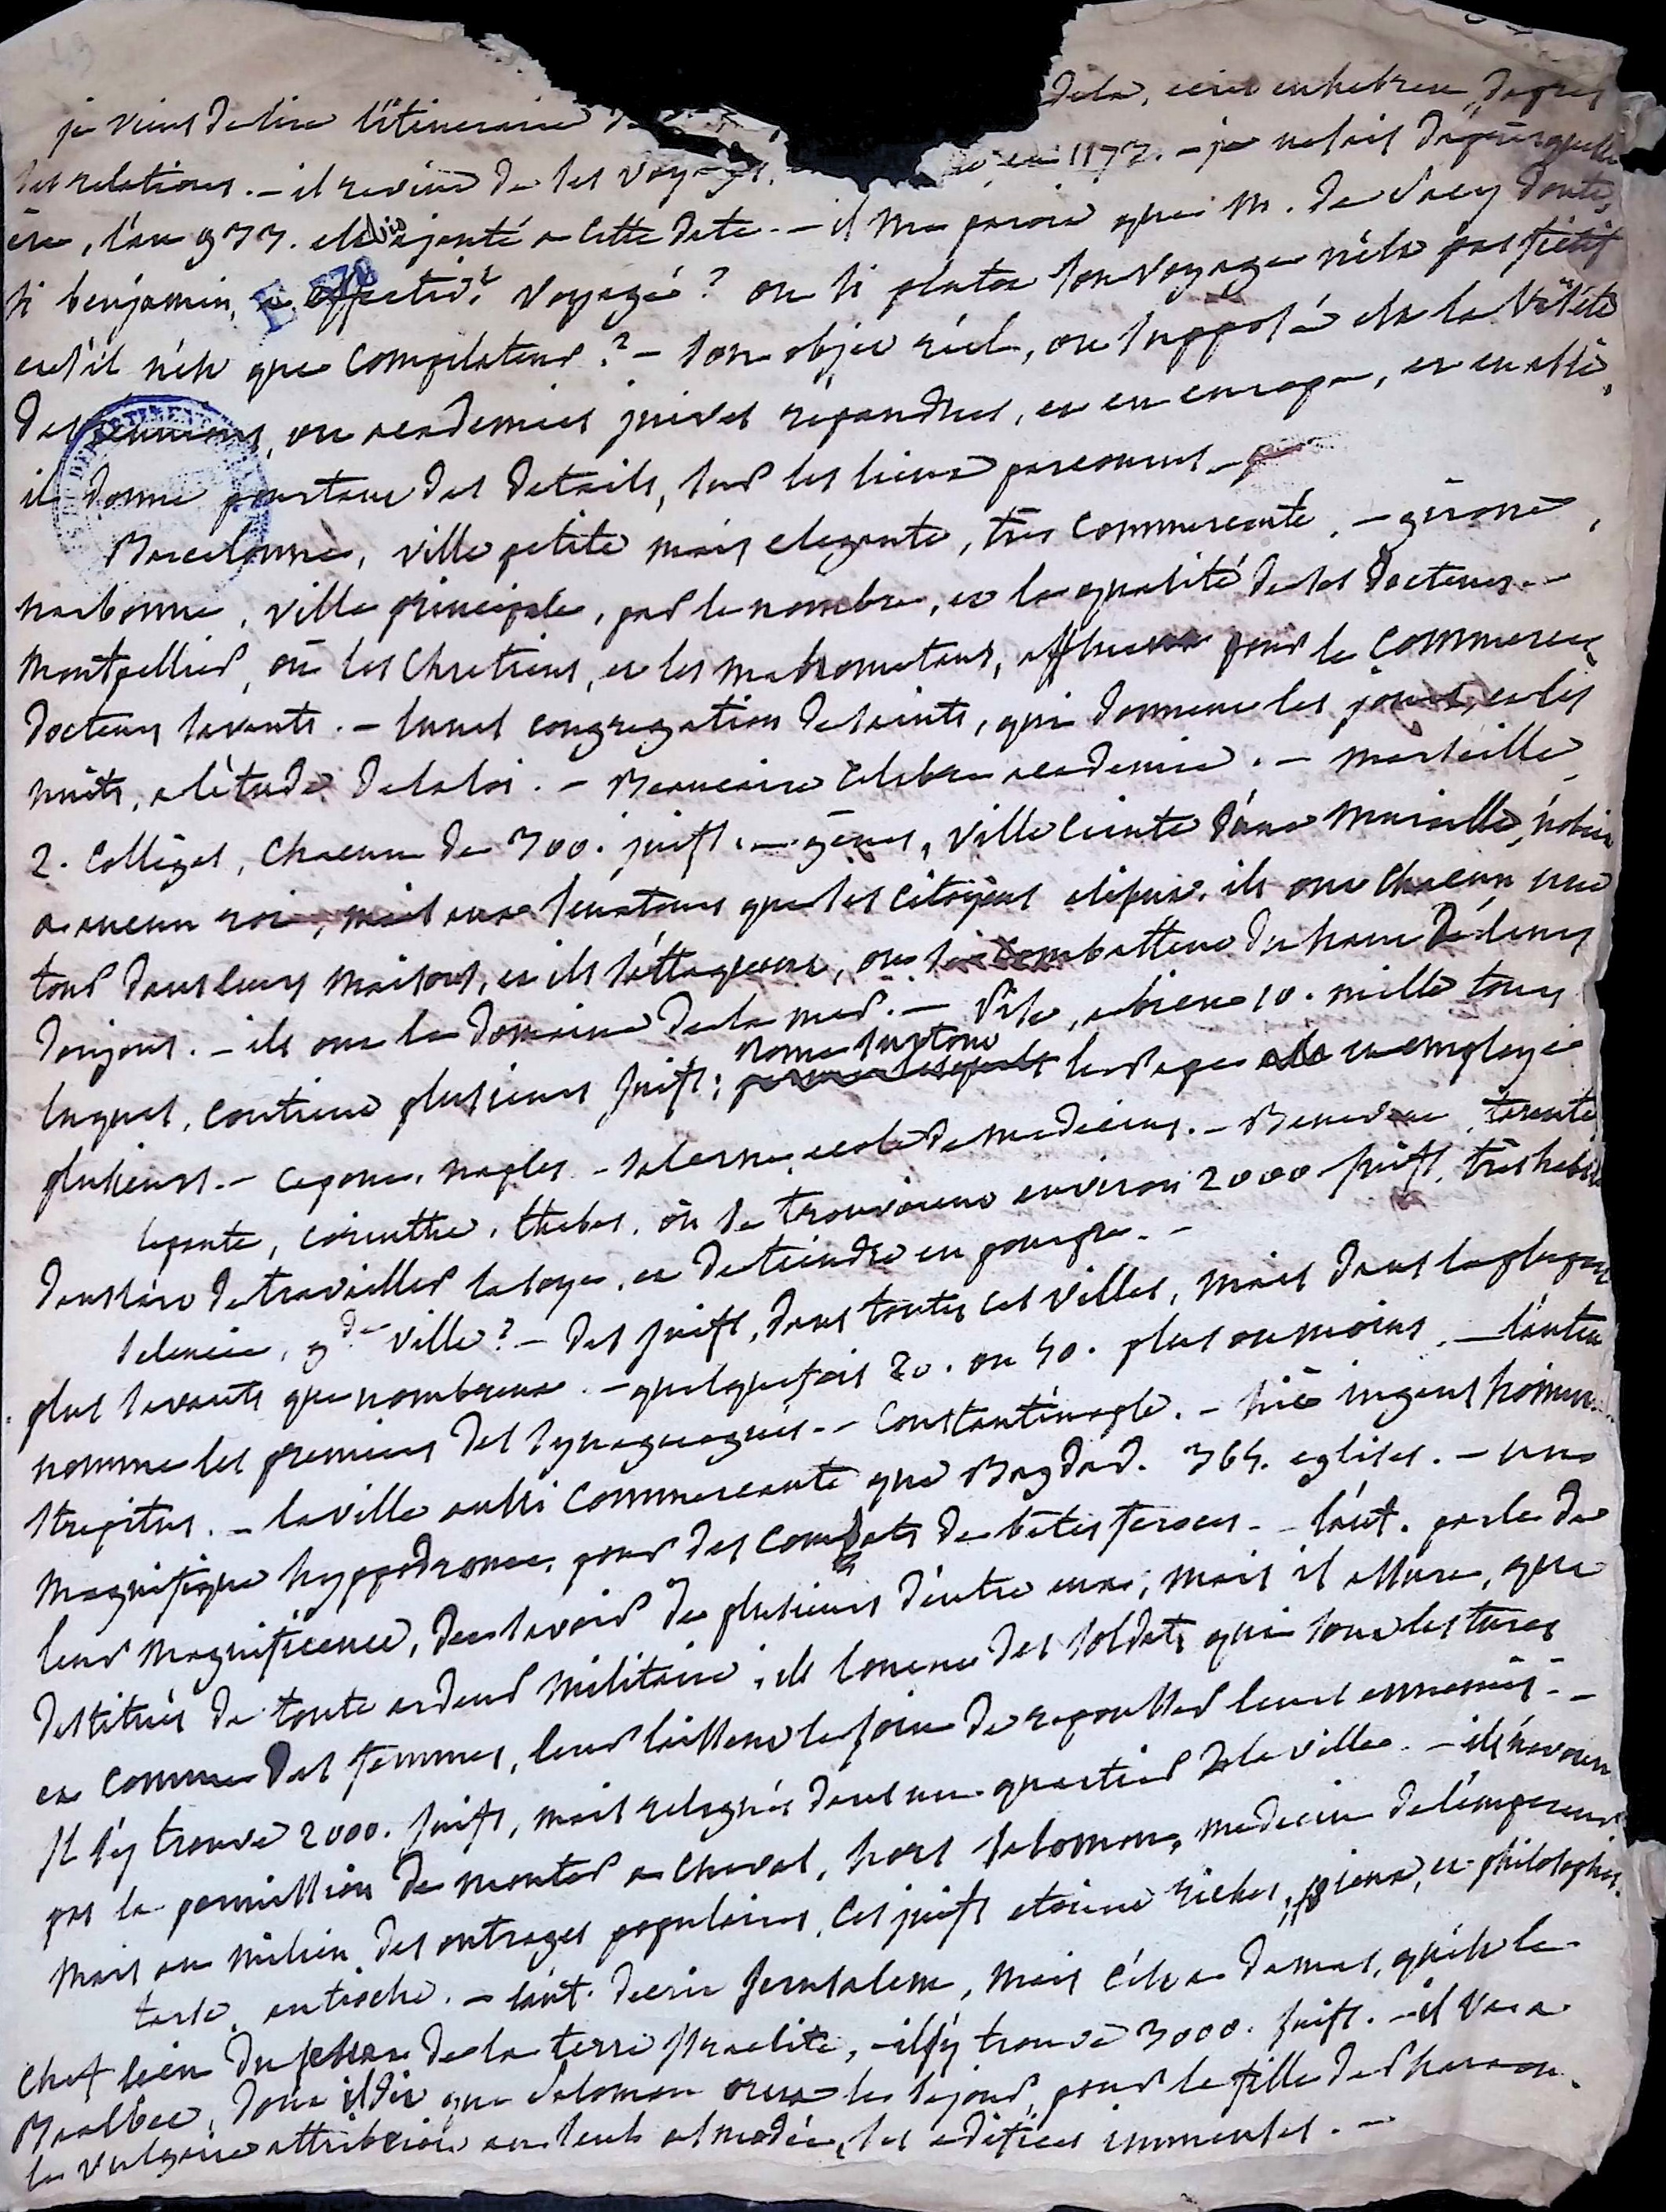 je viens de lire l'itineraire de dela, ecrit en hebreu, d'apres
ses relations. - il revint de ses voyages, en 1173. - je ne sais d'apres quelle
ère, l'an 933. est ajouté a cette date. - il me paroit que M. de Sacy doute,
si benjamin, a effectiv.t voyagé? ou si plutot son voyage n'est pas fictif
et s'il n'est que compilateur? - son objet réel, ou supposé est la visite
des reunions, ou academies juives repandues, et en europe, et en asie,
il donne pourtant des details, sur les lieux parcourus -
Barcelonne, ville petite mais elegante, très commercante. - gironne,
narbonne, ville principale, par le nombre, et la qualité de ses docteurs. -
Montpellier, où les chretiens, et les mahometans, affluent pour le commerce,
docteurs savants. - lunel congregation de saints, qui donnent les jours, et les
nuits, a l'etude de la loi. - Beaucaire celebre academie. - Marseille
2. collèges, chacun de 300. juifs. - gènes, ville ceinte d'une muraille, n'obeit
a aucun roi, mais aux senateurs que ses citoyens elisent. ils ont chacun une
tour dans leurs maisons, et ils s'attaquent, ou se combattent du haut de leurs
donjons. - ils ont le domaine de la mer. - Pise, a bien 10. mille tours
luques, contient plusieurs juifs; Rome surtout le pape en employe
plusieurs. - Capoue, naples - salerne, ecole de medecins. - Benevent, tarente
lepante, corinthe, thebes, où se trouvoient environ 2000 juifs, très habiles
dans l'art de travailler la soye, et de teindre en pourpre. -
selencie, g.de ville? - des juifs, dans toutes ces villes, mais dans la plupart
plus savants que nombreux. - quelquefois 20. ou 40. plus ou moins. - l'auteur
nomme les premiers des synagogues. - Constantinople. - hic ingens hominum
strepitus. - la ville aussi commercante que Bagdad. 365. eglises. - un
magnifique hyppodrome, pour des combats de bêtes feroces. - l'aut. parle de
leur magnificence, du savoir de plusieurs d'entre eux, mais il assure, que
destitués de toute ardeur militaire, ils louent des soldats qui sont les turcs
et comme des femmes, leur laissent le soin de repousser leurs ennemis. -
Il s'y trouve 2000. juifs, mais relegués dans un quartier de la ville. - ils n'avoient
pas la permission de monter a cheval, hors salomon, medecin de l'empereur
mais au milieu des outrages populaires, ces juifs etoient riches, pieux, et philosophes.
tarse, antioche. - l'aut. decrit Jerusalem, mais c'est a damas, qu'est le
chef lieu du de la terre Israelite, - il s'y trouve 3000. juifs. - il va a
Baalbec, dont il dit que Salomon orna le sejour, pour la fille de Pharaon.
le vulgaire attribuoit au seul asmodée, ses edifices immenses. -